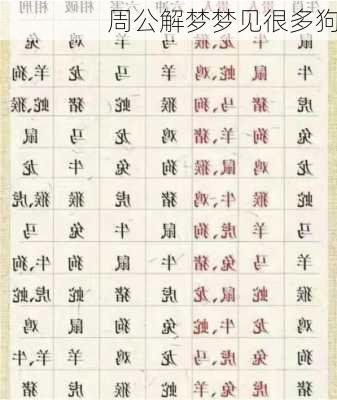 周公解梦梦见很多狗
六害 相破 相刑
鼠 牛 猴、龙 马 羊 鸡 兔
牛 鼠 鸡、蛇 羊 马 龙 狗、羊
虎 猪 狗、马 猴 蛇 猪 蛇、猴
兔 狗 猪、羊 鸡 龙 马 鼠
龙 鸡 鼠、猴 狗 兔 牛 龙
蛇 猴 鸡、牛 猪 虎 猴 猴、虎
马 羊 狗、虎 鼠 牛 兔 马
羊 马 猪、兔 牛 鼠 狗 狗、牛
猴 蛇 龙、鼠 虎 猪 蛇 虎、蛇
鸡 龙 蛇、牛 兔 狗 鼠 鸡
狗 兔 马、虎 龙 鸡 羊 牛、羊
猪 虎 羊、兔 蛇 猴 虎 猪